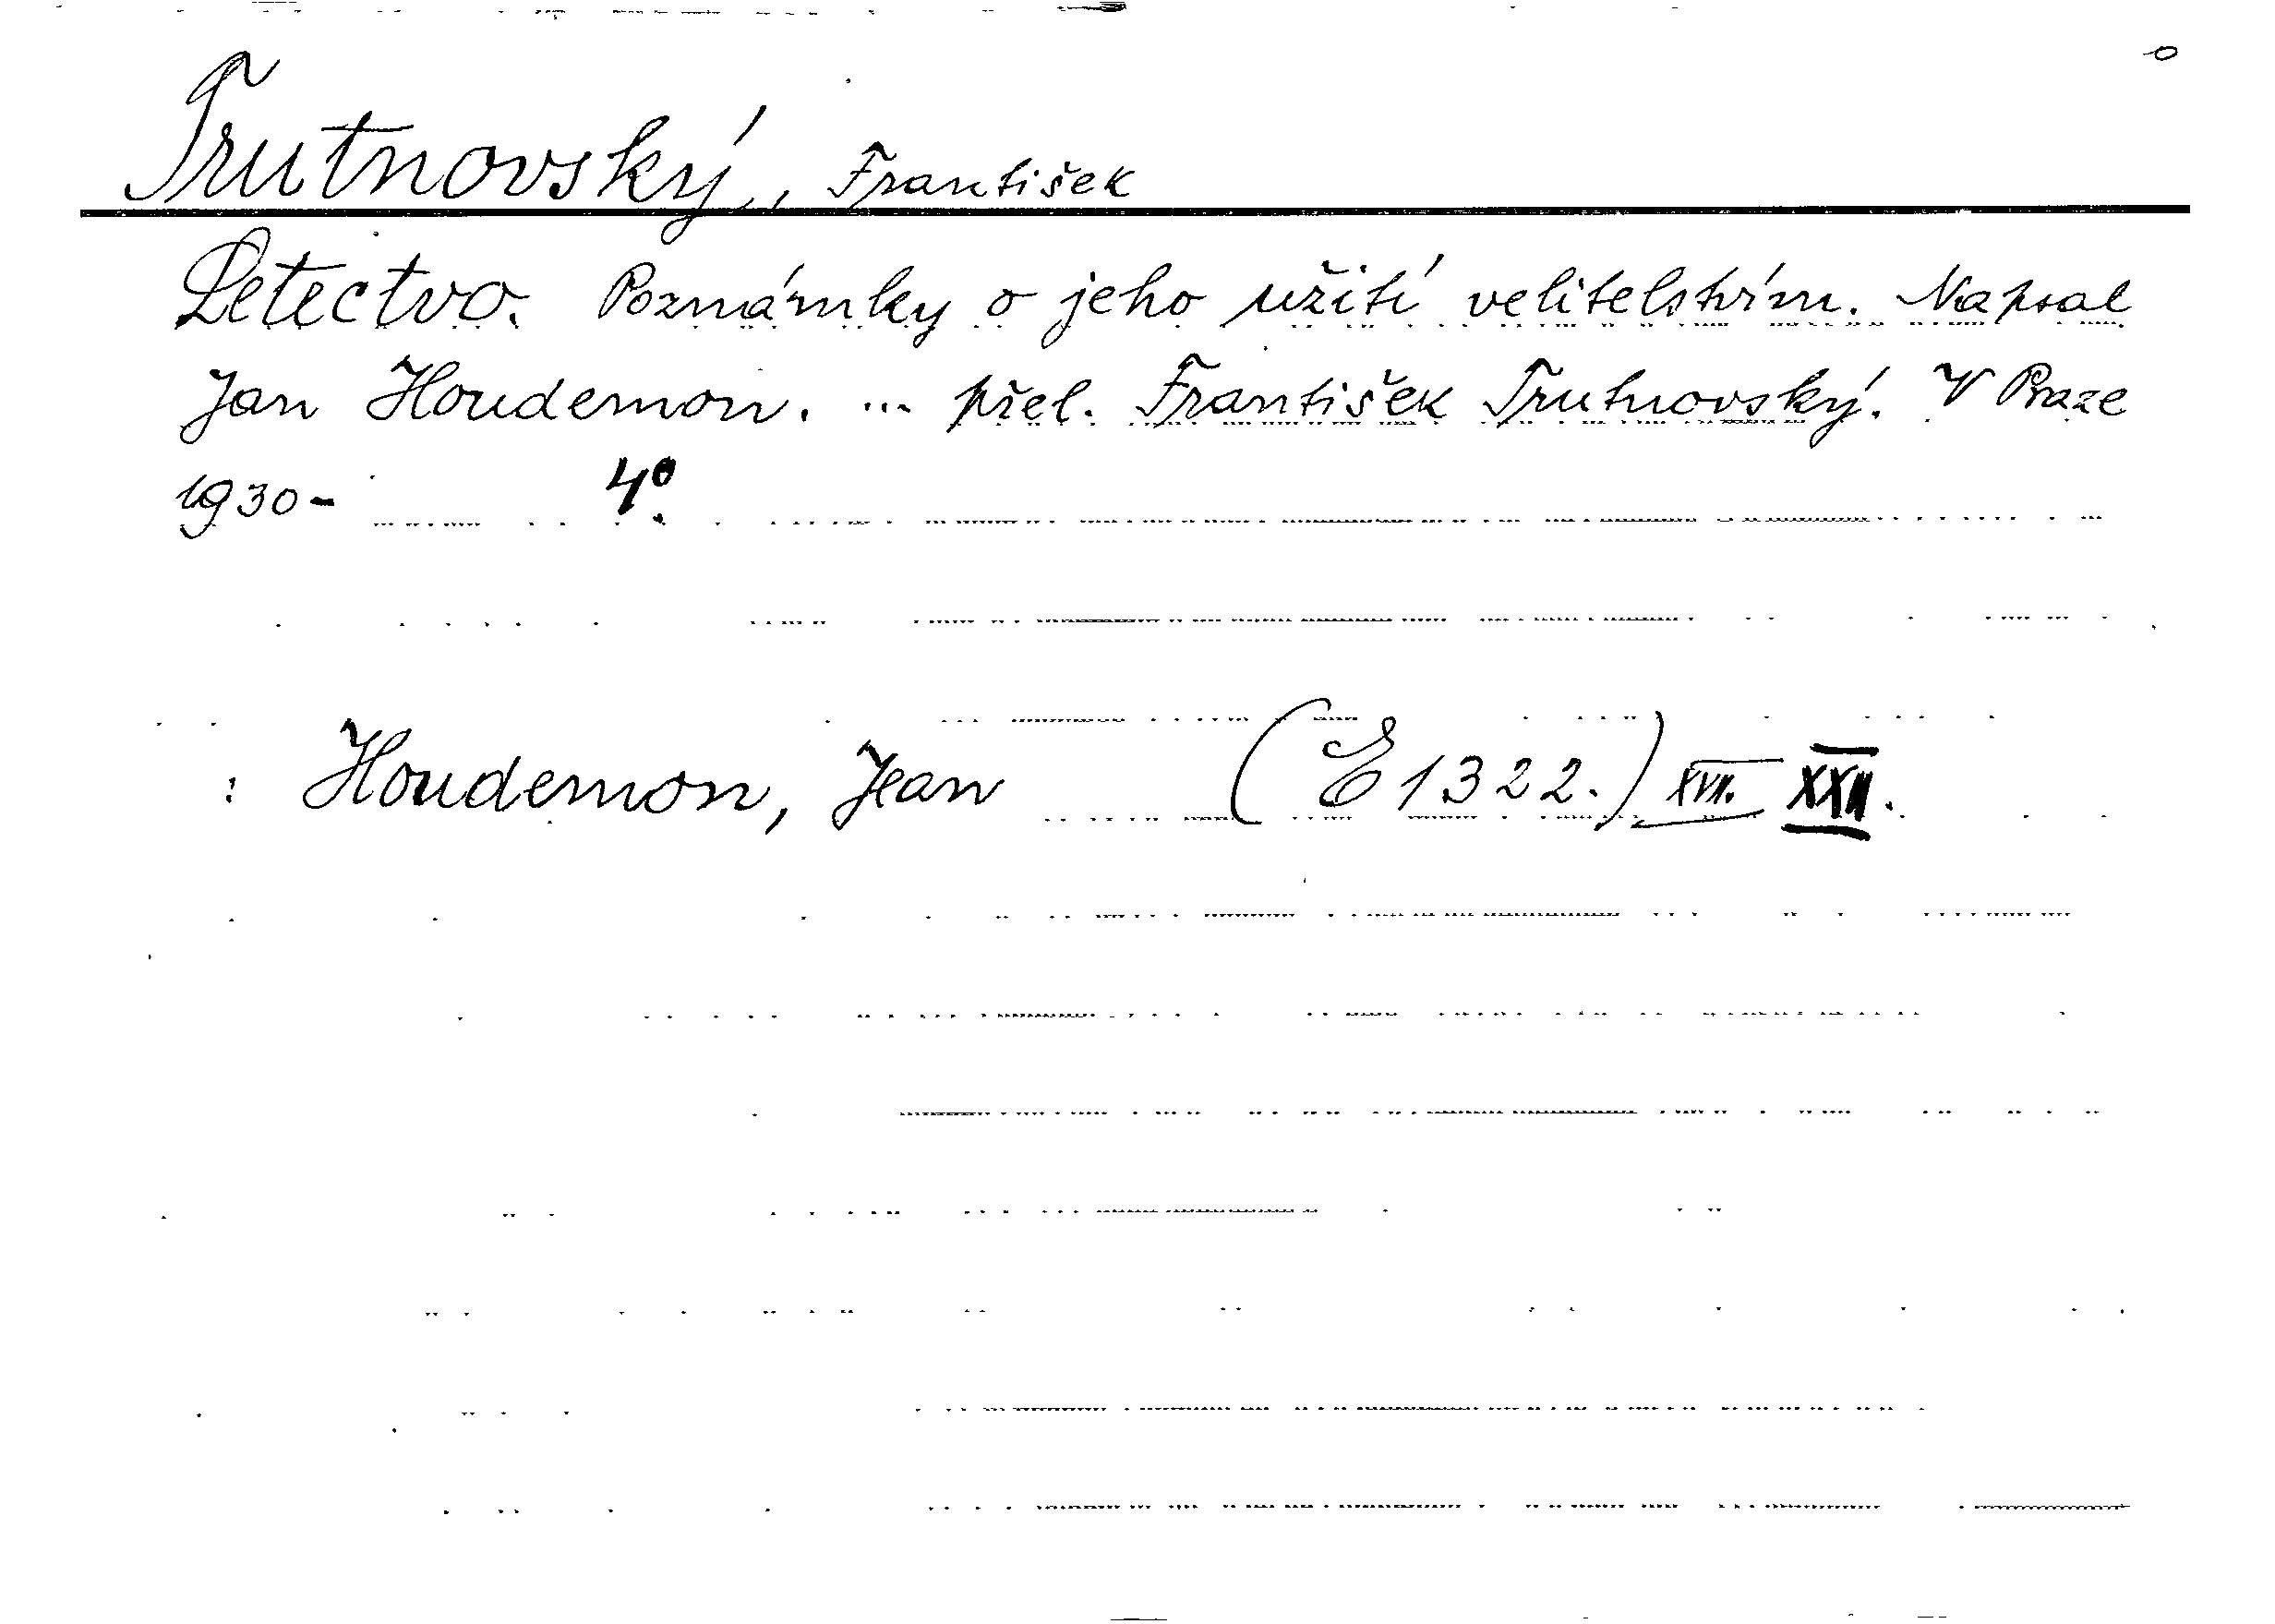 Trutnovský, František
Letectvo. Poznámky o jeho užití velitelstvím. Napsal
Jan Houdemon. ... přel. František Trutnovský. V Praze
1930- 4°.
: Houdemon, Jean (E 1322.) XVII. XXII.